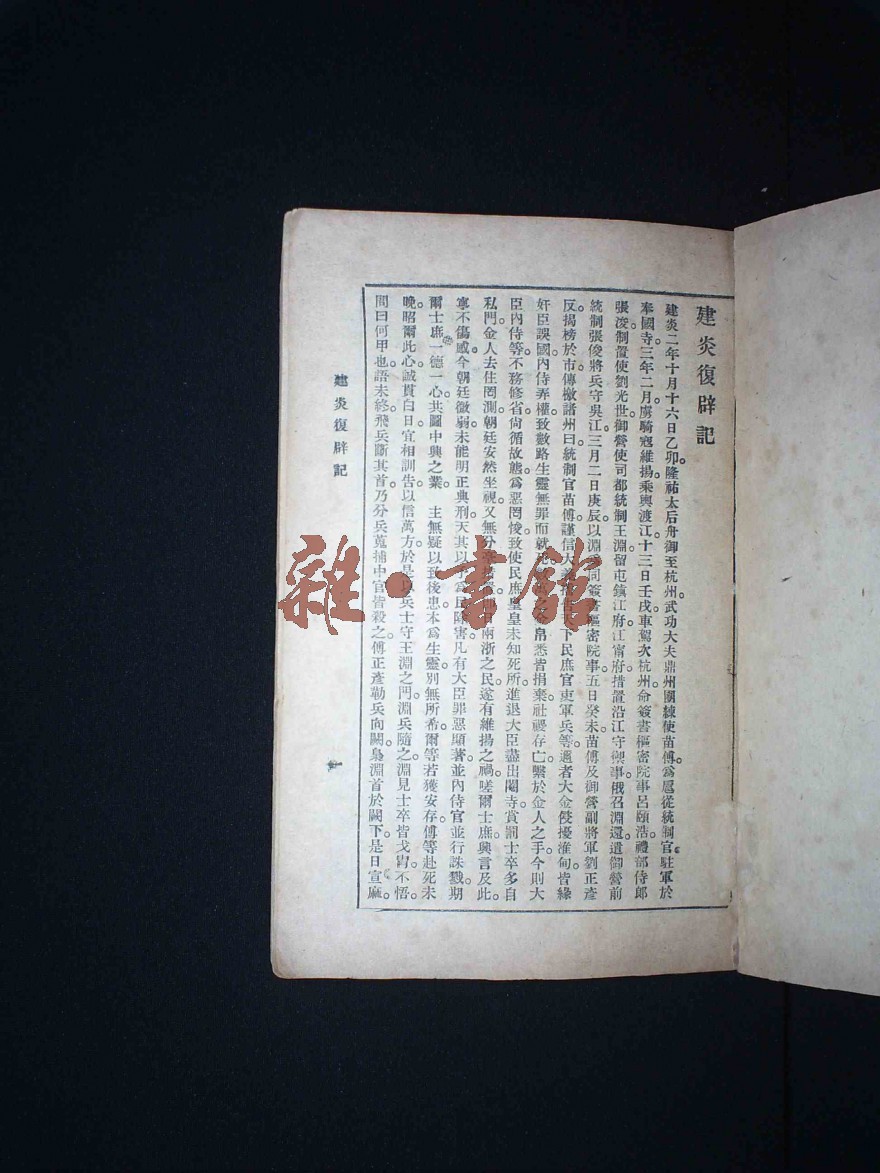 建炎復辟記
建炎二年十月十六日乙卯。隆祐太后舟御至杭州。武功大夫鼎州團練使苗傅。爲扈從統制官。駐軍於
奉國寺。三年二月。虜騎寇維揚。乘輿渡江。十三日壬戌。車駕次杭州。命簽書樞密院事呂頤浩。禮部侍郎
張浚。制置使劉光世。御營使司都統制王淵。留屯鎮江府。江甯府。措置沿江守禦事。俄召淵還。遣御營前
統制張俊將兵守吳江。三月二日庚辰。以淵 同簽書樞密院事。五日癸未。苗傅及御營副將軍劉正彥
反。揭榜於市。傳檄諸州曰。統制官苗傅。謹信大 下民庶官吏軍兵等。邇者大金侵擾淮甸。皆緣
奸臣誤國。內侍弄權。致數路生靈無罪而就死。 帛悉皆捐棄。社稷存亡。繫於金人之手。今則大
臣內侍等。不務修省。尙循故態。爲惡罔悛。致使民庶皇皇。未知死所。進退大臣盡出閹寺。賞罰士卒多自
私門。金人去住罔測。朝廷安然坐視。又無分 兩浙之民。遂有維揚之禍。嗟爾士庶。興言及此。
寧不傷感。今朝廷微弱。未能明正典刑。天其以予爲民除害。凡有大臣罪惡顯著。並內侍官並行誅戮。期
爾士庶。一德一心。共圖中興之業。 主無疑以致後患。本爲生靈。別無所希。爾等若獲安存。傅等赴死未
晚。昭爾此心。誠貫白日。宜相訓告。以信萬方。於是 兵士守王淵之門。淵兵隨之。淵見士卒皆戈冑。不悟。
間曰何甲也。語未終。飛兵斷其首。乃分兵蒐捕中官。皆殺之。傅正彥勒兵向闕。梟淵首於闕下。是日宣麻。
建炎復辟記
一
雜·書館